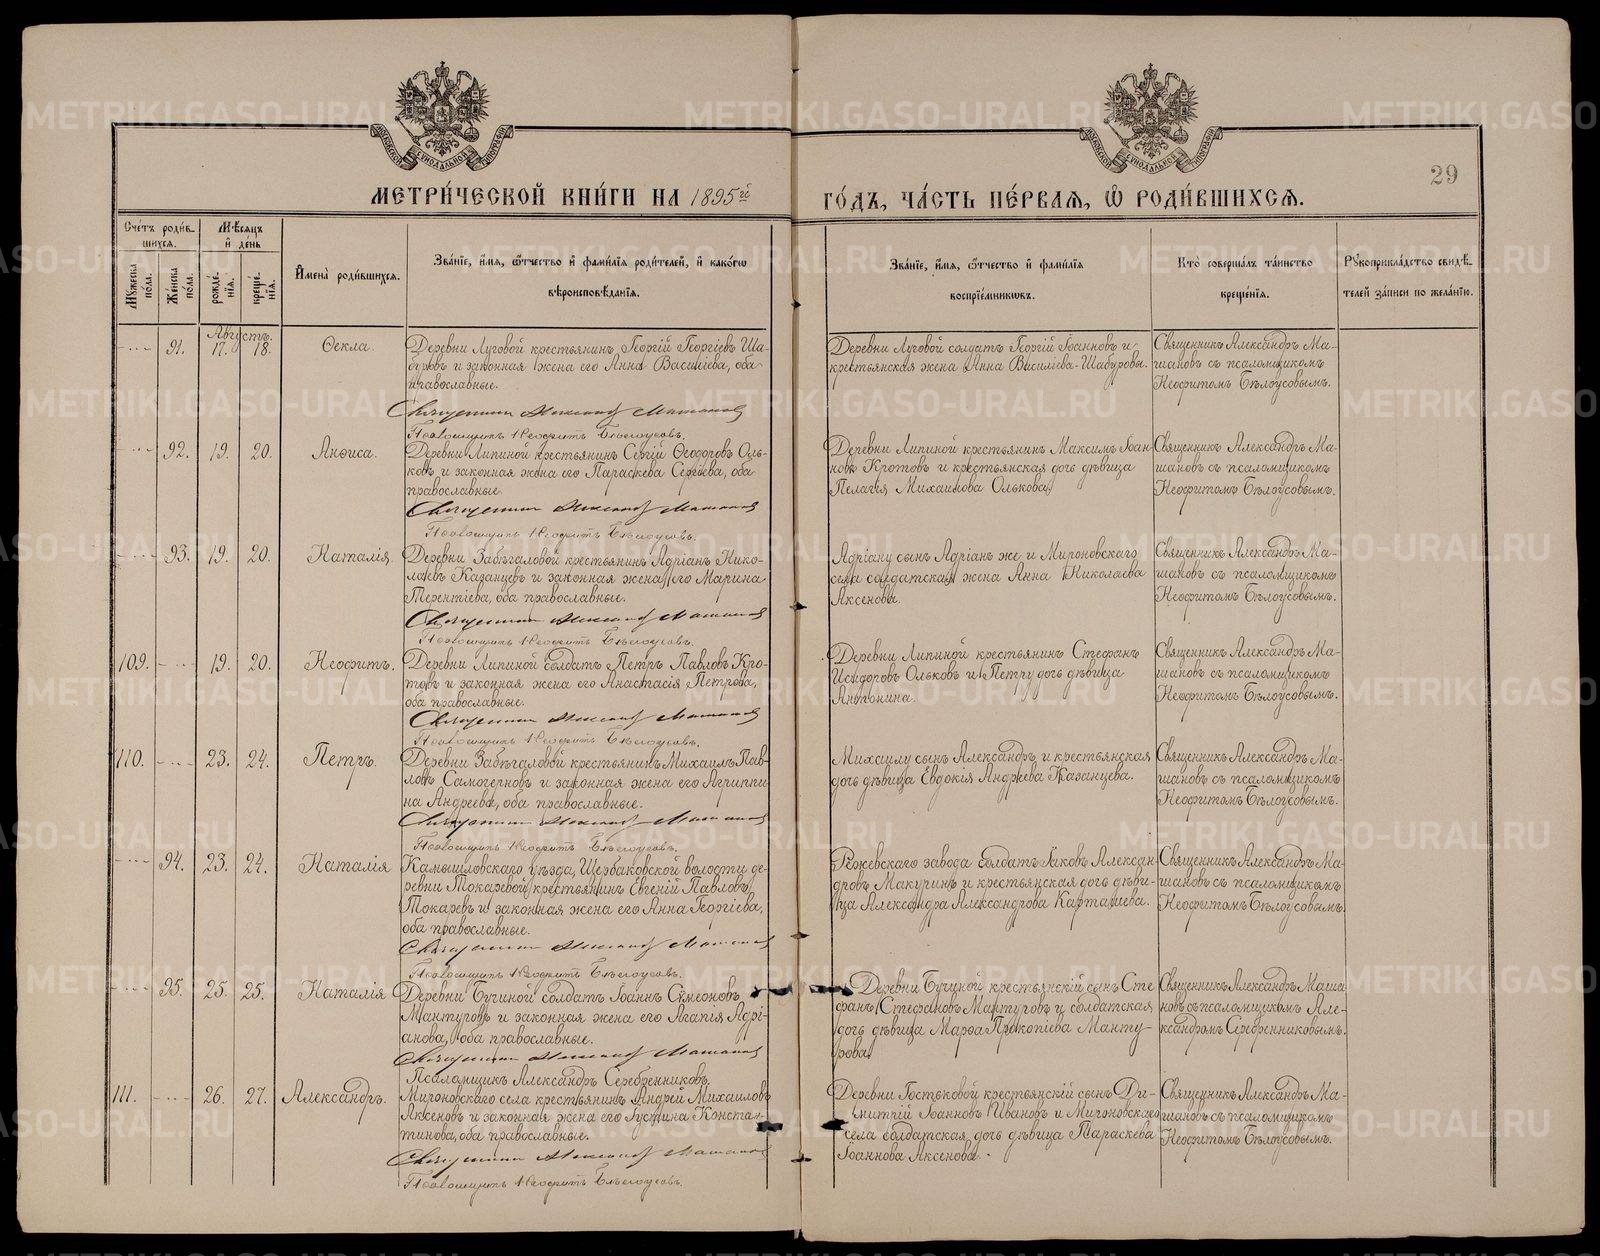 МОСКОВСКОЙ СУНОДАЛЬНОЙ ТИПОГРАФІИ
МОСКОВСКОЙ СУНОДАЛЬНОЙ ТИПОГРАФІИ
29
МЕТРИ́ЧЕСКОЙ КНИ́ГИ НА 1895й ГО́ДЪ, ЧА́СТЬ ПЕ́РВАЯ, Ѡ РОДИ́ВШИХСЯ.
Сче́тъ роди́в-
шихся.
Мѣ́сяцъ
и де́нь
Му́жеска по́ла.
Же́нска по́ла.
рожде́-нїя.
креще́-нїя.
Имена̀ роди́вшихся.
Зва́нїе, и́мя, ѻ҆́тчество и фами́лїя роди́телей, и како́гѡ
вѣроисповѣ́данїя.
Зва́нїе, и́мя, ѻ҆́тчество и фами́лїя
воспрїе́мникѡвъ.
Кто̀ соверша́лъ та́инство
креще́нїя.
Рꙋкоприкла́дство свидѣ́-
телей за́писи по жела́нїю.
Августъ.
91. 17. 18. Ѳекла.
Деревни Луговой крестьянинъ Георгій Георгіевъ Ша-
буровъ и законная жена его Анна Василіева, оба
православные.
Священникъ Александръ Машановъ
Псаломщикъ Неофитъ Бѣлоусовъ.
Деревни Луговой солдатъ Георгій Іоанновъ и
крестьянская жена Анна Василіева Шабуровы.
Священникъ Александръ Ма-
шановъ съ псаломщикомъ
Неофитомъ Бѣлоусовымъ.
92. 19. 20. Анѳиса.
Деревни Липиной крестьянинъ Сергій Ѳеодоровъ Оль-
ковъ и законная жена его Параскева Сергіева, оба
православные.
Священникъ Александръ Машановъ
Псаломщикъ Неофитъ Бѣлоусовъ.
Деревни Липиной крестьянинъ Максимъ Іоан-
новъ Кротовъ и крестьянская дочь дѣвица
Пелагія Михаилова Олькова.
Священникъ Александръ Ма-
шановъ съ псаломщикомъ
Неофитомъ Бѣлоусовымъ.
93. 19. 20. Наталія.
Деревни Забѣгаловой крестьянинъ Адріанъ Нико-
лаевъ Казанцевъ и законная жена его Марина
Терентіева, оба православные.
Священникъ Александръ Машановъ
Псаломщикъ Неофитъ Бѣлоусовъ.
Адріану сынъ Адріанъ же и Мироновскаго
села солдатская жена Анна Николаева
Аксенова.
Священникъ Александръ Ма-
шановъ съ псаломщикомъ
Неофитомъ Бѣлоусовымъ.
109. 19. 20. Неофитъ.
Деревни Липиной солдатъ Петръ Павловъ Кро-
товъ и законная жена его Анастасія Петрова,
оба православные.
Священникъ Александръ Машановъ
Псаломщикъ Неофитъ Бѣлоусовъ.
Деревни Липиной крестьянинъ Стефанъ
Исидоровъ Ольковъ и Петру дочь дѣвица
Антонина.
Священникъ Александръ Ма-
шановъ съ псаломщикомъ
Неофитомъ Бѣлоусовымъ.
110. 23. 24. Петръ.
Деревни Забѣгаловой крестьянинъ Михаилъ Пав-
ловъ Самочерновъ и законная жена его Агриппи-
на Андреева, оба православные.
Священникъ Александръ Машановъ
Псаломщикъ Неофитъ Бѣлоусовъ.
Михаилу сынъ Александръ и крестьянская
дочь дѣвица Евдокія Андреева Казанцева.
Священникъ Александръ Ма-
шановъ съ псаломщикомъ
Неофитомъ Бѣлоусовымъ.
94. 23. 24. Наталія
Камышловскаго уѣзда, Щербаковской волости де-
ревни Токаревой крестьянинъ Евгеній Павловъ
Токаревъ и законная жена его Анна Георгіева,
оба православные.
Священникъ Александръ Машановъ
Псаломщикъ Неофитъ Бѣлоусовъ.
Режевскаго завода солдатъ Іаковъ Алексан-
дровъ Макуринъ и крестьянская дочь дѣви-
ца Александра Александрова Карташева.
Священникъ Александръ Ма-
шановъ съ псаломщикомъ
Неофитомъ Бѣлоусовымъ.
95. 25. 25. Наталія
Деревни Бучиной солдатъ Іоаннъ Сѵмеоновъ
Мантуровъ и законная жена его Агапія Адрі-
анова, оба православные.
Священникъ Александръ Машановъ
Псаломщикъ Александръ Серебренниковъ.
Деревни Бучиной крестьянскій сынъ Сте-
фанъ Стефановъ Мантуровъ и солдатская
дочь дѣвица Марѳа Прокопіева Манту-
рова.
Священникъ Александръ Маша
новъ съ псаломщикомъ Але-
ксандромъ Серебренниковымъ.
111. 26. 27. Александръ.
Мироновскаго села крестьянинъ Андрей Михаиловъ
Аксеновъ и законная жена его Іустина Констан-
тинова, оба православные.
Священникъ Александръ Машановъ
Псаломщикъ Неофитъ Бѣлоусовъ.
Деревни Гостьковой крестьянскій сынъ Ди-
митрій Іоанновъ Ивановъ и Мироновскаго
села солдатская дочь дѣвица Параскева
Іоаннова Аксенова.
Священникъ Александръ Ма-
шановъ съ псаломщикомъ
Неофитомъ Бѣлоусовымъ.
METRIKI.GASO-URAL.RU